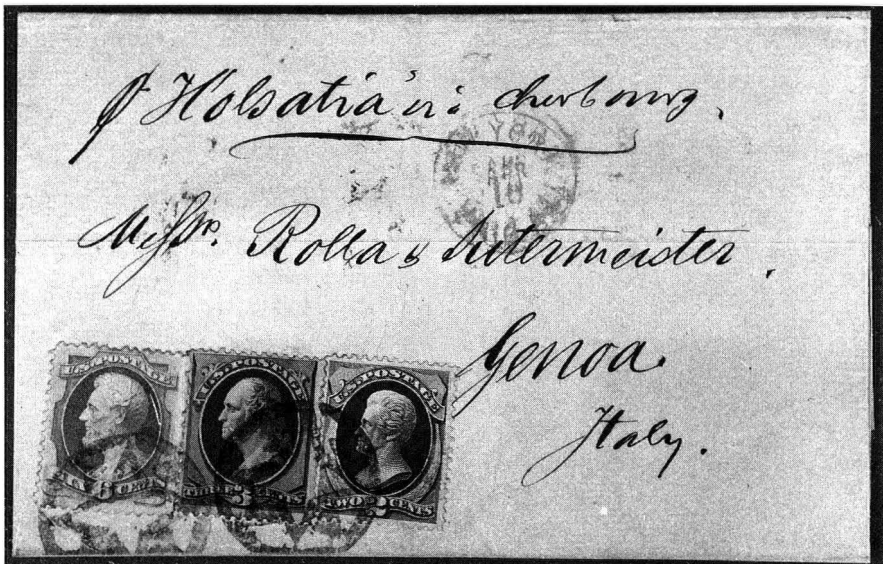 p Holsatia' via cherbourg.
NEW YORK
APR
18
Messrs. Rolla & Sutermeister,
Genoa
Italy.
U.S. POSTAGE
SIX 6 CENTS
U.S. POSTAGE
THREE 3 CENTS
U.S. POSTAGE
TWO 2 CENTS